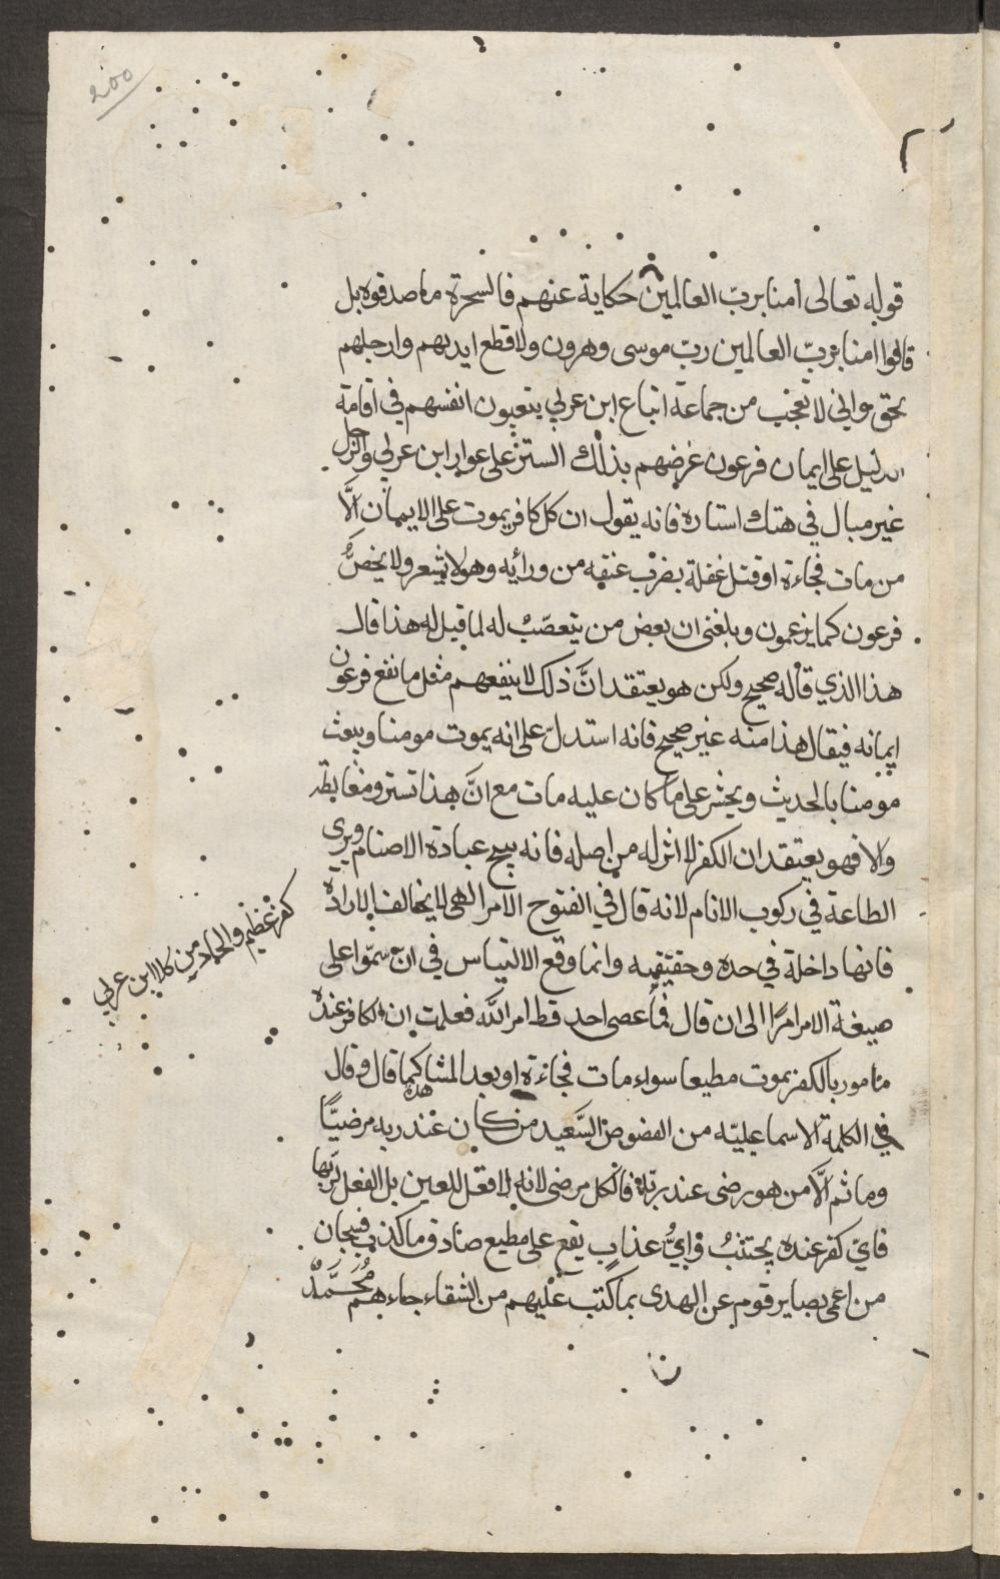 200
قوله تعالى امنا برب العالمين حكاية عنهم فالسحرة ما صدقوه بل
قالوا امنا برب العالمين رب موسى وهرون ولاقطع ايديهم وارجلهم
بحق واني لا تعجب من جماعة اتباع ابن عربي يتعبون انفسهم في اقامة
الدليل على ايمان فرعون غرضهم بذلك الستر على عوار ابن عربي والرجل
غير مبال في هتك استاره فانه يقول ان كل كافر يموت على الايمان الَّا
من مات فجاءة او قتل غفلة بضرب عنقه من ورائه وهو لا يشعر ولا يخصُّ
فرعون كما يزعمون وبلغنى ان بعض من يتعصّب له لما قيل له هذا قال
هذا الذي قاله صحيح ولكن هو يعتقد انَّ ذلك لا ينفعهم مثل ما نفع فرعون
ايمانه فيقال هذا منه غير صحيح فانه استدلّ على انه يموت مومنا ويبعث
مومنا بالحديث ويحشر على ما كان عليه مات مع انَّ هذا تستر ومغالطة
والا فهو يعتقد ان الكفر لا اثر له من اصله فانه يبيح عبادة الاصنام ويرى
الطاعة في ركوب الاثام لانه قال في الفتوح الامر الهى لا يخالف الارادة
فانها داخلة في حده وحقيقته وانما وقع الالتباس في ان سمّوا على
صيغة الامر امرًا الى ان قال فما عصى احد قط امر الله فعلمت ان الكافر عنده
مامور بالكفر يموت مطيعا سواء مات فجاءة او بعد المشا كما قال وقال
في الكلمة الاسماعيليّه من الفصوص السَّعيد من كان عند ربه مرضيًّا
وما ثم الَّا من هو رضى عند ربه فالكل مرضى لانه لا فعل للعين بل الفعل لربها
فايّ كفر عنده يجتنبُ وايُّ عذاب يقع على مطيع صادق ما كذب فسبحان
من اعمى بصاير قوم عن الهدى بما كتب عليهم من الشقاء جاءهم مُحَمَّدٌ
كفر عظيم والحاد من كلام ابن عربي